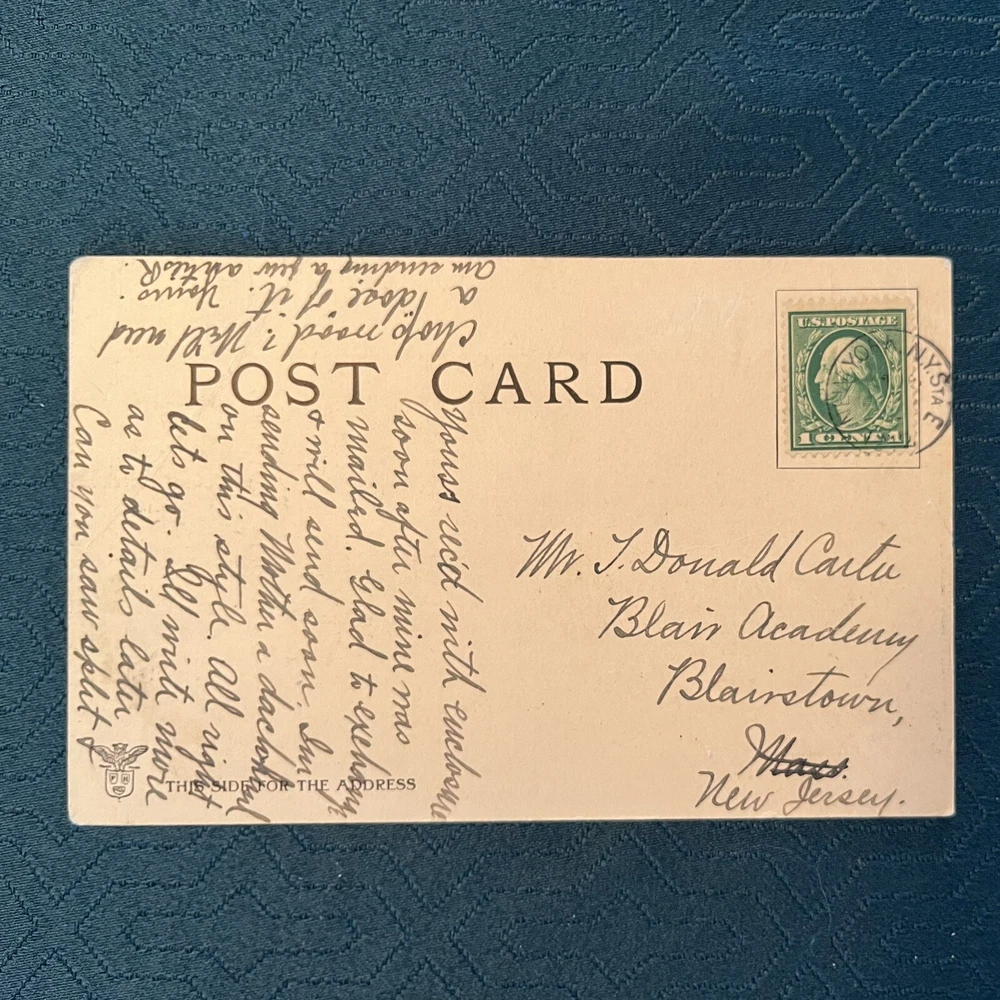 POST CARD
U.S. POSTAGE
1 CENT 1
NEW YORK, N.Y. STA E
Mr. J. Donald Carter
Blair Academy
Blairstown,
Mass.
New Jersey.
Yours rec'd with enclosure
soon after mine was
mailed. Glad to exchange
& will send soon. I'm
sending Mother a
on this style. All right
let's go. I'll write more
as to details later
Can you saw split
chop wood? Will need
a dose of it. Yours.
Am sending a few
THIS SIDE FOR THE ADDRESS